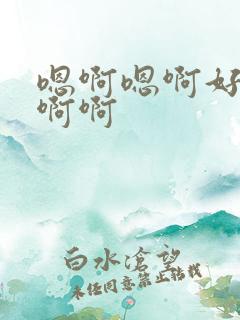 嗯啊嗯啊好
啊啊
白水沧望
未经同意禁止转载